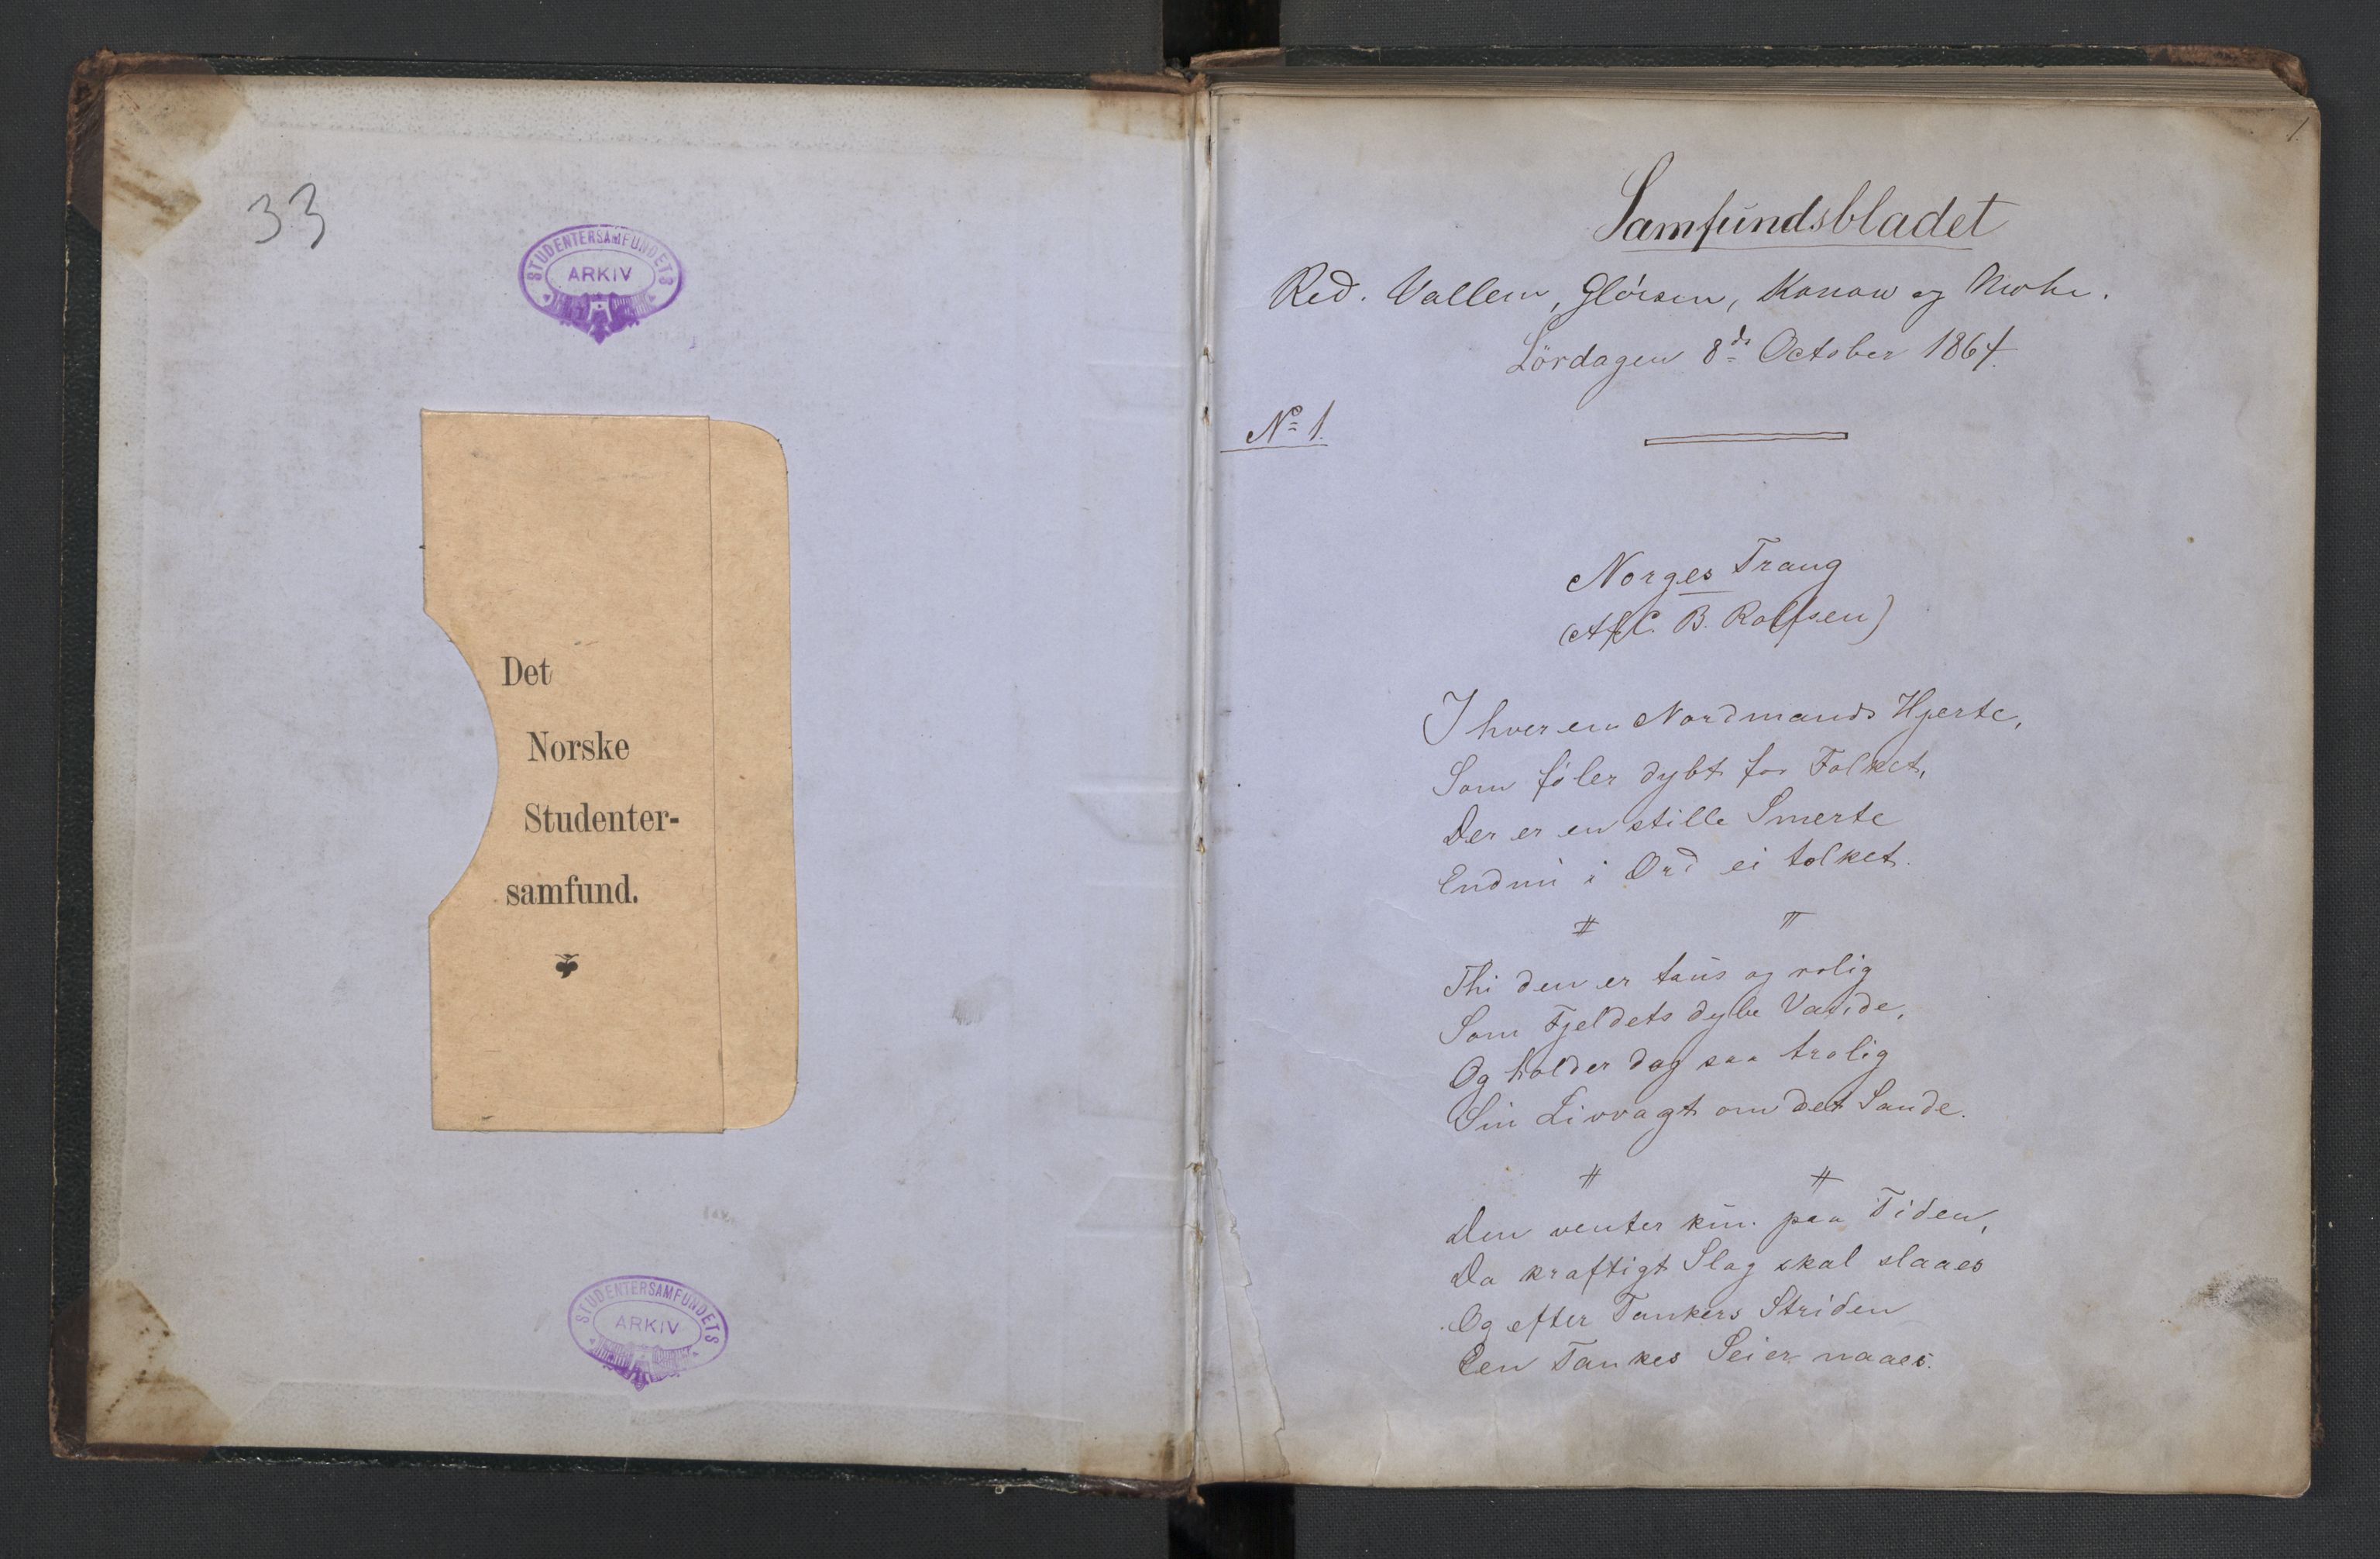 33
STUDENTERSAMFUNDETS
ARKIV
Det
Norske
Studenter-
samfund.
STUDENTERSAMFUNDETS
ARKIV
1.
Samfundsbladet
Red. Vallem, Glörsen, Konow og Mohr.
Lördagen 8de October 1864.
No 1.
Norges Trang
(Af C. B. Rolfsen)
I hver en Nordmands Hjerte,
Som föler dybt for Folket,
Der er en stille Smerte
Endnu i Ord ei tolket.
Thi den er taus og rolig
Som Fjeldets dybe Vande,
Og holder dog saa trolig
Sin Livvagt om det Sande.
Den venter kun paa Tiden,
Da kraftigt Slag skal slaaes
Og efter Tankers Striden
Een Tankes Seier naaes.